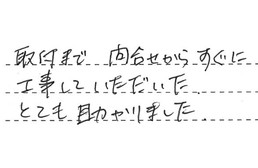 取付まで 問合せからすぐに
工事していただいた、
とても助かりました。